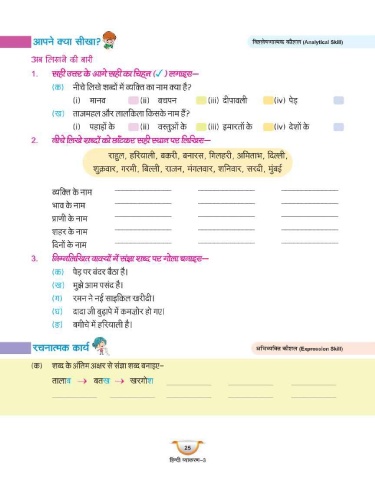 आपने क्या सीखा?
विश्लेषणात्मक कौशल (Analytical Skill)
अब लिखने की बारी
1. सही उत्तर के आगे सही का चिह्न (✓) लगाइए—
(क) नीचे लिखे शब्दों में व्यक्ति का नाम क्या है?
(i) मानव (ii) बचपन (iii) दीपावली (iv) पेड़
(ख) ताजमहल और लालकिला किसके नाम हैं?
(i) पहाड़ों के (ii) वस्तुओं के (iii) इमारतों के (iv) देशों के
2. नीचे लिखे शब्दों को छाँटकर सही स्थान पर लिखिए—
राहुल, हरियाली, बकरी, बनारस, गिलहरी, अमिताभ, दिल्ली,
शुक्रवार, गरमी, बिल्ली, राजन, मंगलवार, शनिवार, सरदी, मुंबई
व्यक्ति के नाम
भाव के नाम
प्राणी के नाम
शहर के नाम
दिनों के नाम
3. निम्नलिखित वाक्यों में संज्ञा शब्द पर गोला बनाइए—
(क) पेड़ पर बंदर बैठा है।
(ख) मुझे आम पसंद है।
(ग) रमन ने नई साइकिल खरीदी।
(घ) दादा जी बुढ़ापे में कमज़ोर हो गए।
(ङ) बगीचे में हरियाली है।
रचनात्मक कार्य
अभिव्यक्ति कौशल (Expression Skill)
(क) शब्द के अंतिम अक्षर से संज्ञा शब्द बनाइए—
तालाब → बतख → खरगोश
25
हिन्दी व्याकरण-3